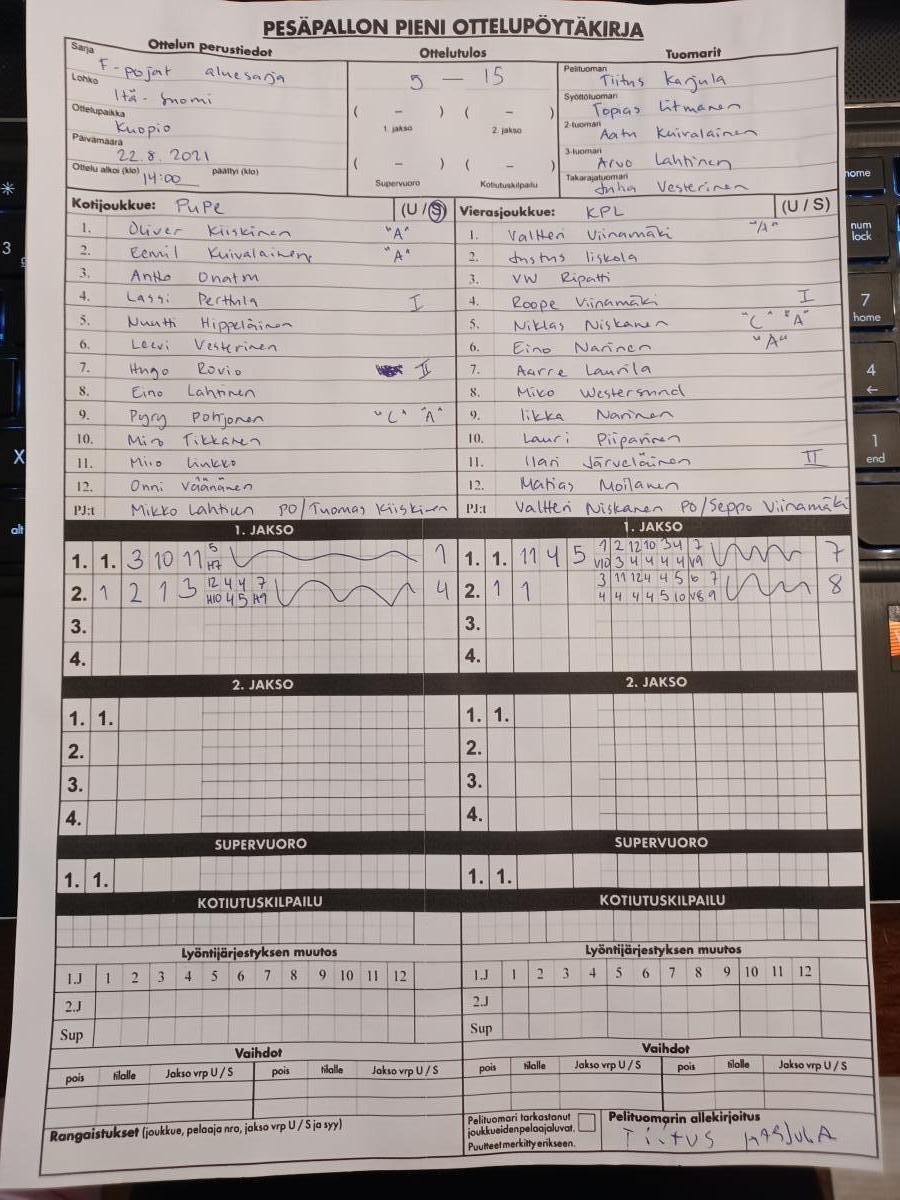 PESÄPALLON PIENI OTTELUPÖYTÄKIRJA
Ottelun perustiedot
Sarja F-pojat aluesarja
Lohko Itä-Suomi
Ottelupaikka Kuopio
Päivämäärä 22.8.2021
Ottelu alkoi (klo) 14:00 päättyi (klo)
Ottelutulos
5 — 15
( – ) ( – )
1. jakso 2. jakso
( – ) ( – )
Supervuoro Kotiutuskilpailu
Tuomarit
Pelituomari Tiitus Karjula
Syöttötuomari Topias Litmanen
2-tuomari Aatu Kuivalainen
3-tuomari Arvo Lahtinen
Takarajatuomari Juha Vesterinen
Kotijoukkue: PuPe (U / S)
1. Oliver Kiiskinen "A"
2. Eemil Kuivalainen "A"
3. Antto Onatsu
4. Lassi Perttula I
5. Nuutti Hippeläinen
6. Leevi Vesterinen
7. Hugo Rovio II
8. Eino Lahtinen
9. Pyry Pohjonen "C" "A"
10. Miro Tikkanen
11. Miro Linkko
12. Onni Väänänen
PJ:t Mikko Lahtinen PO/Tuomas Kiiskinen
Vierasjoukkue: KPL (U / S)
1. Valtteri Viinamäki "A"
2. Justus Iiskola
3. VW Ripatti
4. Roope Viinamäki I
5. Niklas Niskanen "C" "A"
6. Eino Narinen "A"
7. Aarre Laurila
8. Miko Westersund
9. Iikka Narinen
10. Lauri Piiparinen
11. Ilari Järveläinen II
12. Matias Moilanen
PJ:t Valtteri Niskanen PO/Seppo Viinamäki
1. JAKSO
1. 1. 3 10 11 5 H7 1
2. 1 2 1 3 12 4 4 7 H10 4 5 H9 4
3.
4.
1. JAKSO
1. 1. 11 4 5 1 2 12 10 3 4 7 V10 3 4 4 4 4 V9 7
2. 1 1 3 11 12 4 4 5 6 7 4 4 4 4 5 10 V8 9 8
3.
4.
2. JAKSO
1. 1.
2.
3.
4.
2. JAKSO
1. 1.
2.
3.
4.
SUPERVUORO
1. 1.
SUPERVUORO
1. 1.
KOTIUTUSKILPAILU
KOTIUTUSKILPAILU
Lyöntijärjestyksen muutos
1.J 1 2 3 4 5 6 7 8 9 10 11 12
2.J
Sup
Lyöntijärjestyksen muutos
1.J 1 2 3 4 5 6 7 8 9 10 11 12
2.J
Sup
Vaihdot
pois tilalle Jakso vrp U / S pois tilalle Jakso vrp U / S
Vaihdot
pois tilalle Jakso vrp U / S pois tilalle Jakso vrp U / S
Rangaistukset (joukkue, pelaaja nro, jakso vrp U / S ja syy)
Pelituomari tarkastanut
joukkueiden pelaajaluvat.
Puutteet merkitty erikseen.
Pelituomarin allekirjoitus
Tiitus Karjula
*
3
X
alt
home
num
lock
7
home
4
←
1
end